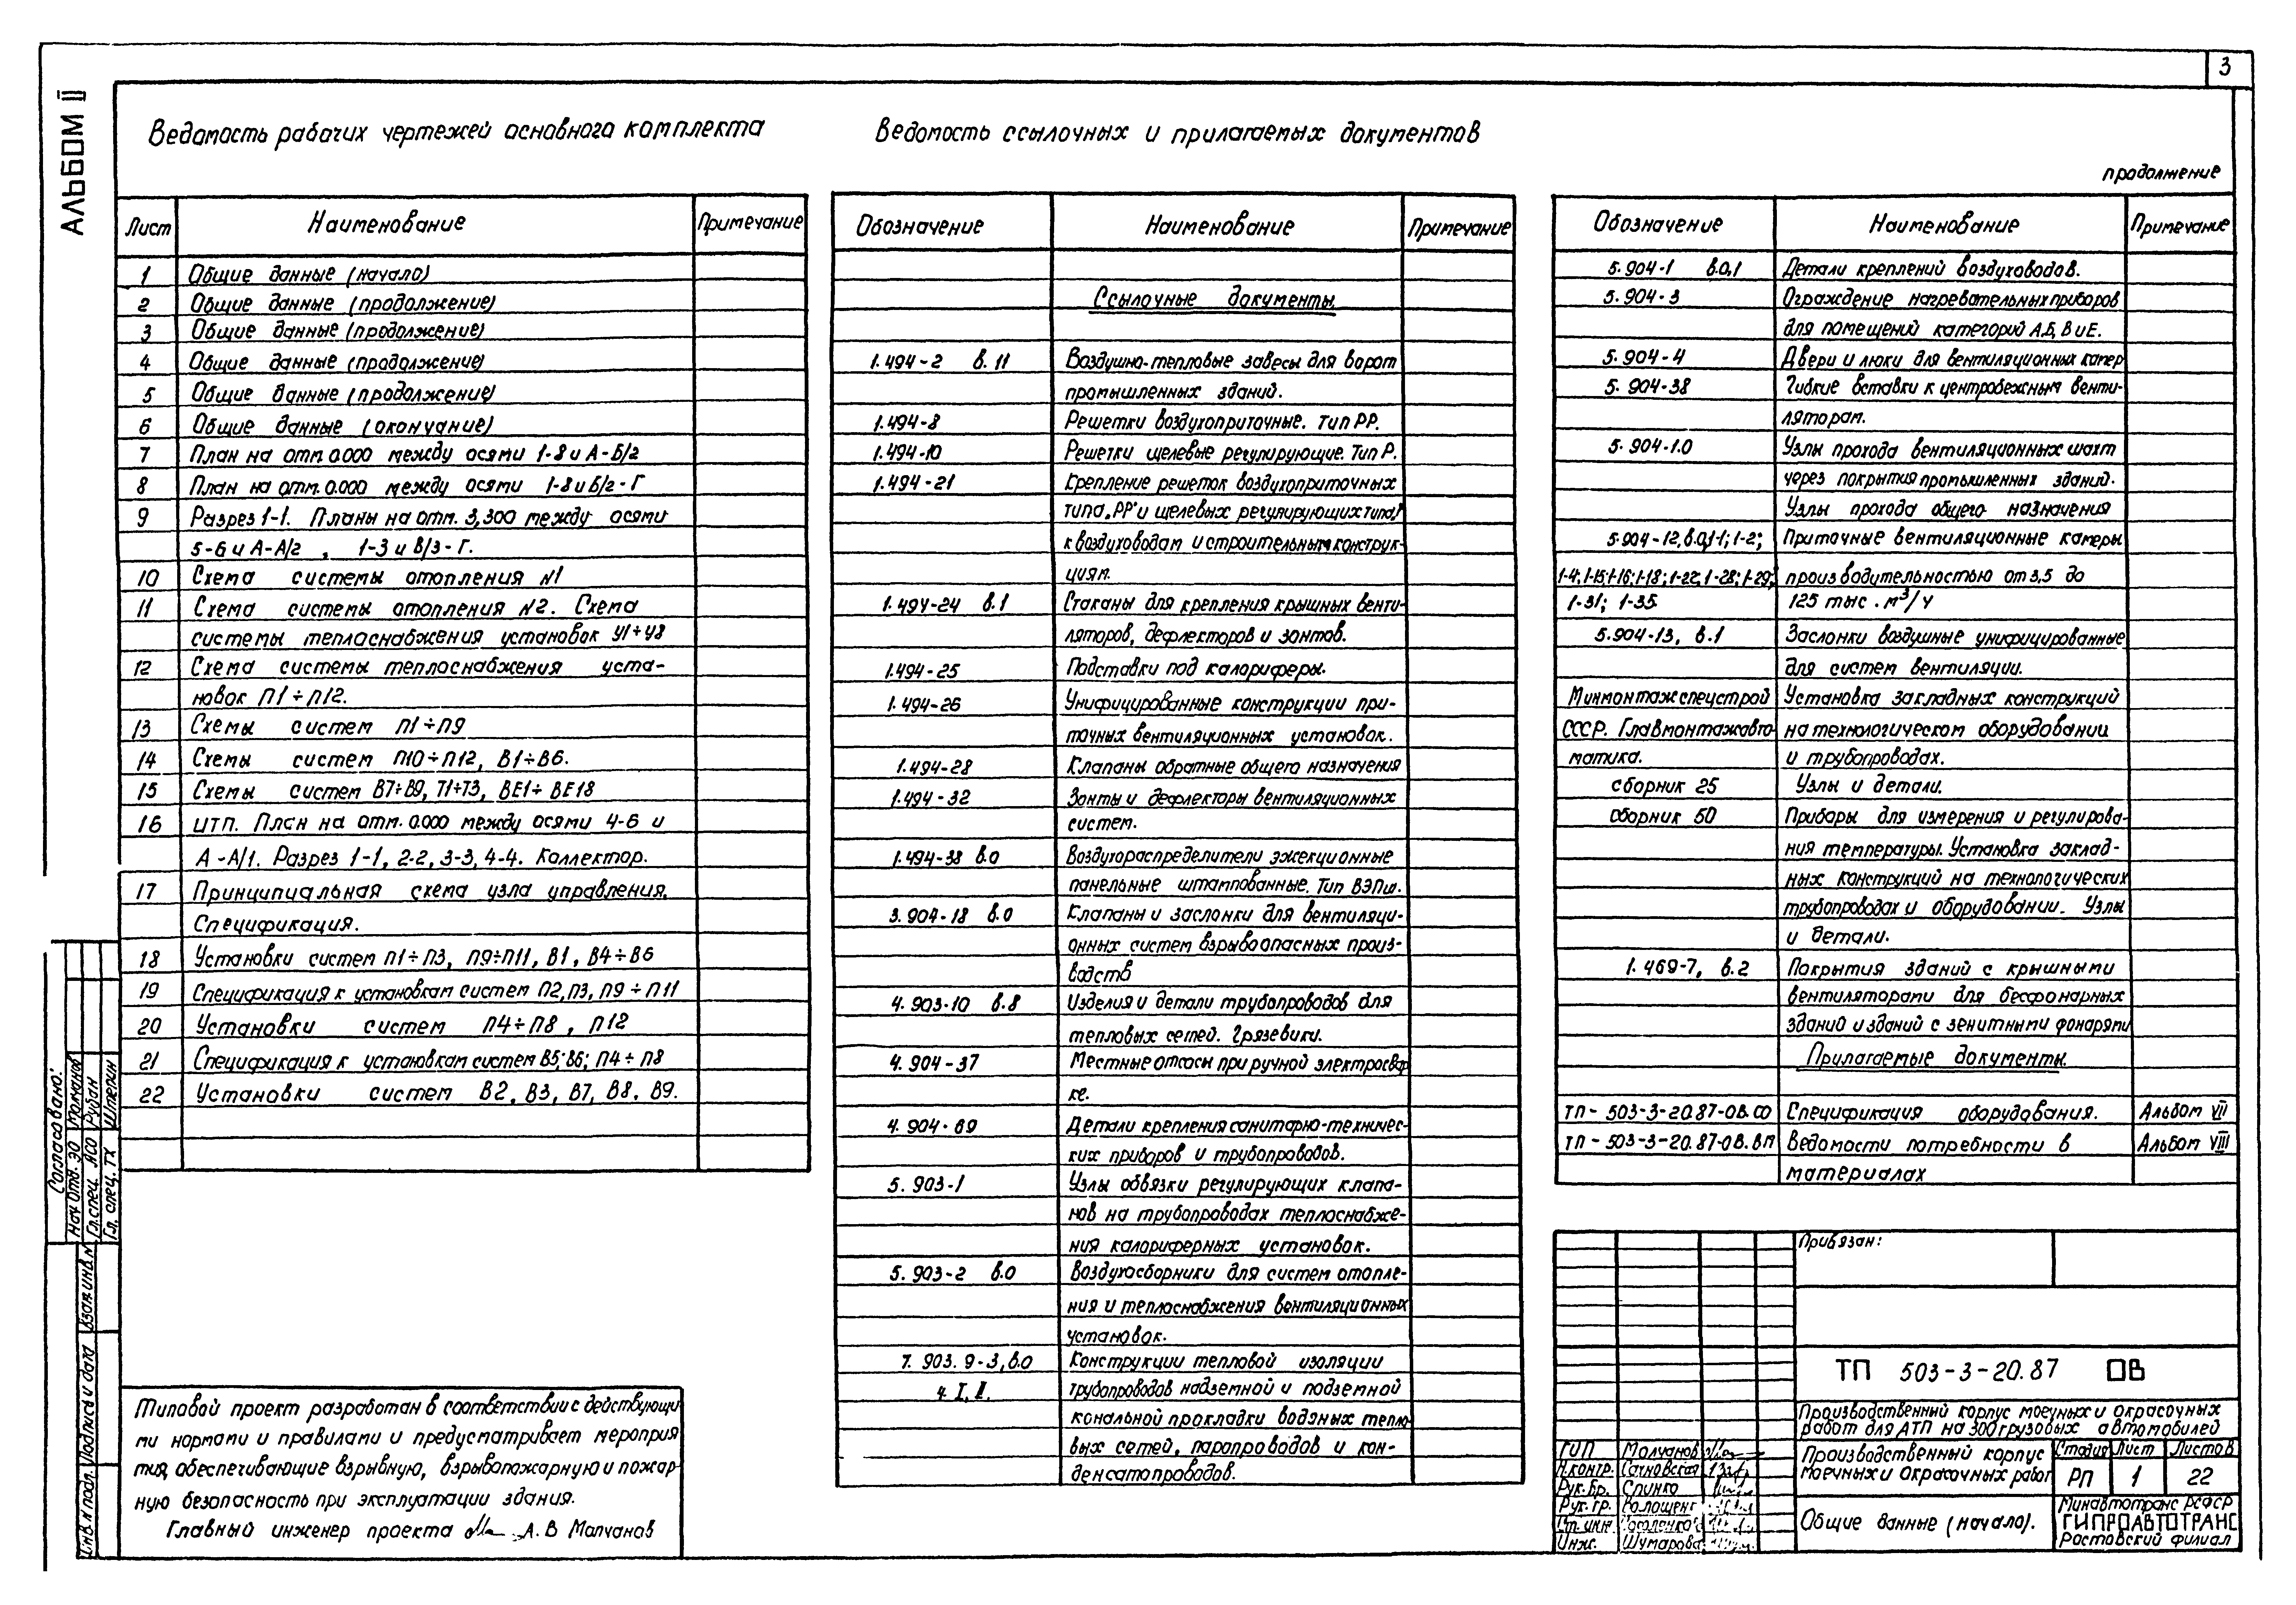 3
АЛЬБОМ II
Ведомость рабочих чертежей основного комплекта
Лист Наименование Примечание
1 Общие данные (начало)
2 Общие данные (продолжение)
3 Общие данные (продолжение)
4 Общие данные (продолжение)
5 Общие данные (продолжение)
6 Общие данные (окончание)
7 План на отм 0.000 между осями 1-8 и А-Б/2
8 План на отм. 0.000 между осями 1-8 и Б/2-Г
9 Разрез 1-1. Планы на отм. 3,300 между осями
5-6 и А-А/2 , 1-3 и В/3-Г.
10 Схема системы отопления №1
11 Схема системы отопления №2. Схема
системы теплоснабжения установок У1÷У8
12 Схема системы теплоснабжения уста-
новок П1÷П12.
13 Схемы систем П1÷П9
14 Схемы систем П10÷П12, В1÷В6.
15 Схемы систем В7÷В9, Т1÷Т3, ВЕ1÷ВЕ18
16 ИТП. План на отм. 0.000 между осями 4-6 и
А-А/1. Разрез 1-1, 2-2, 3-3, 4-4. Коллектор.
17 Принципиальная схема узла управления.
Спецификация.
18 Установки систем П1÷П3, П9÷П11, В1, В4÷В6
19 Спецификация к установкам систем П2, П3, П9÷П11
20 Установки систем П4÷П8, П12
21 Спецификация к установкам систем В5; В6; П4÷П8
22 Установки систем В2, В3, В7, В8, В9.
Типовой проект разработан в соответствии с действующи
ми нормами и правилами и предусматривает мероприя
тия, обеспечивающие взрывную, взрывопожарную и пожар-
ную безопасность при эксплуатации здания.
Главный инженер проекта А.В Молчанов
Ведомость ссылочных и прилагаемых документов
Обозначение Наименование Примечание
Ссылочные документы
1.494-2 в.11 Воздушно-тепловые завесы для ворот
промышленных зданий.
1.494-8 Решетки воздухоприточные. Тип РР.
1.494-10 Решетки щелевые регулирующие. Тип Р.
1.494-21 Крепление решеток воздухоприточных
типа „РР" и щелевых регулирующих типа „Р"
к воздуховодам и строительным конструк-
циям.
1.494-24 в.1 Стаканы для крепления крышных венти-
ляторов, дефлекторов и зонтов.
1.494-25 Подставки под калориферы.
1.494-26 Унифицированные конструкции при-
точных вентиляционных установок.
1.494-28 Клапаны обратные общего назначения
1.494-32 Зонты и дефлекторы вентиляционных
систем.
1.494-38 в.0 Воздухораспределители эжекционные
панельные штампованные. Тип ВЭПш.
3.904-18 в.0 Клапаны и заслонки для вентиляци-
онных систем взрывоопасных произ-
водств
4.903-10 в.8 Изделия и детали трубопроводов для
тепловых сетей. Грязевики.
4.904-37 Местные отсосы при ручной электросвар
ке.
4.904-69 Детали крепления санитарно-техничес-
ких приборов и трубопроводов.
5.903-1 Узлы обвязки регулирующих клапа-
нов на трубопроводах теплоснабже-
ния калориферных установок.
5.903-2 в.0 Воздухосборники для систем отопле-
ния и теплоснабжения вентиляционных
установок.
7.903.9-3, в.0 Конструкции тепловой изоляции
ч. I, II. трубопроводов надземной и подземной
канальной прокладки водяных тепло-
вых сетей, паропроводов и кон-
денсатопроводов.
продолжение
Обозначение Наименование Примечание
5.904-1 в.0,1 Детали креплений воздуховодов.
5.904-3 Ограждение нагревательных приборов
для помещений категорий А,Б, В и Е.
5.904-4 Двери и люки для вентиляционных камер
5.904-38 Гибкие вставки к центробежным венти-
ляторам.
5.904-10 Узлы прохода вентиляционных шахт
через покрытия промышленных зданий.
Узлы прохода общего назначения
5.904-12, в.0,1-1; 1-2; Приточные вентиляционные камеры
1-4; 1-15; 1-16; 1-18; 1-22; 1-28; 1-29; производительностью от 3,5 до
1-31; 1-35 125 тыс. м³/ч
5.904-13, в.1 Заслонки воздушные унифицированные
для систем вентиляции.
Минмонтажспецстрой Установка закладных конструкций
СССР. Главмонтажавто- на технологическом оборудовании
матика. и трубопроводах.
сборник 25 Узлы и детали.
сборник 50 Приборы для измерения и регулирова-
ния температуры. Установка заклад-
ных конструкций на технологических
трубопроводах и оборудовании. Узлы
и детали.
1.469-7, в.2 Покрытия зданий с крышными
вентиляторами для бесфонарных
зданий и зданий с зенитными фонарями
Прилагаемые документы.
ТП-503-3-20.87-ОВ.СО Спецификация оборудования. Альбом VII
ТП-503-3-20.87-ОВ.ВМ Ведомости потребности в Альбом VIII
материалах
Привязан:
ТП 503-3-20.87 ОВ
Производственный корпус моечных и окрасочных
работ для АТП на 300 грузовых автомобилей
Производственный корпус
моечных и окрасочных работ
Стадия Лист Листов
РП 1 22
Общие данные (начало).
Минавтотранс РСФСР
ГИПРОАВТОТРАНС
Ростовский филиал
ГИП Молчанов
Н.контр. Сачновская
Рук.бр. Спинко
Рук.гр. Волощенк
Ст.инж.
Инж. Шумарова
Согласовано:
Нач отд. ЭО Романов
Гл.спец. АСО Рубан
Гл. спец. ТХ Штерин
Инв.№ подл. Подпись и дата Взам.инв.№